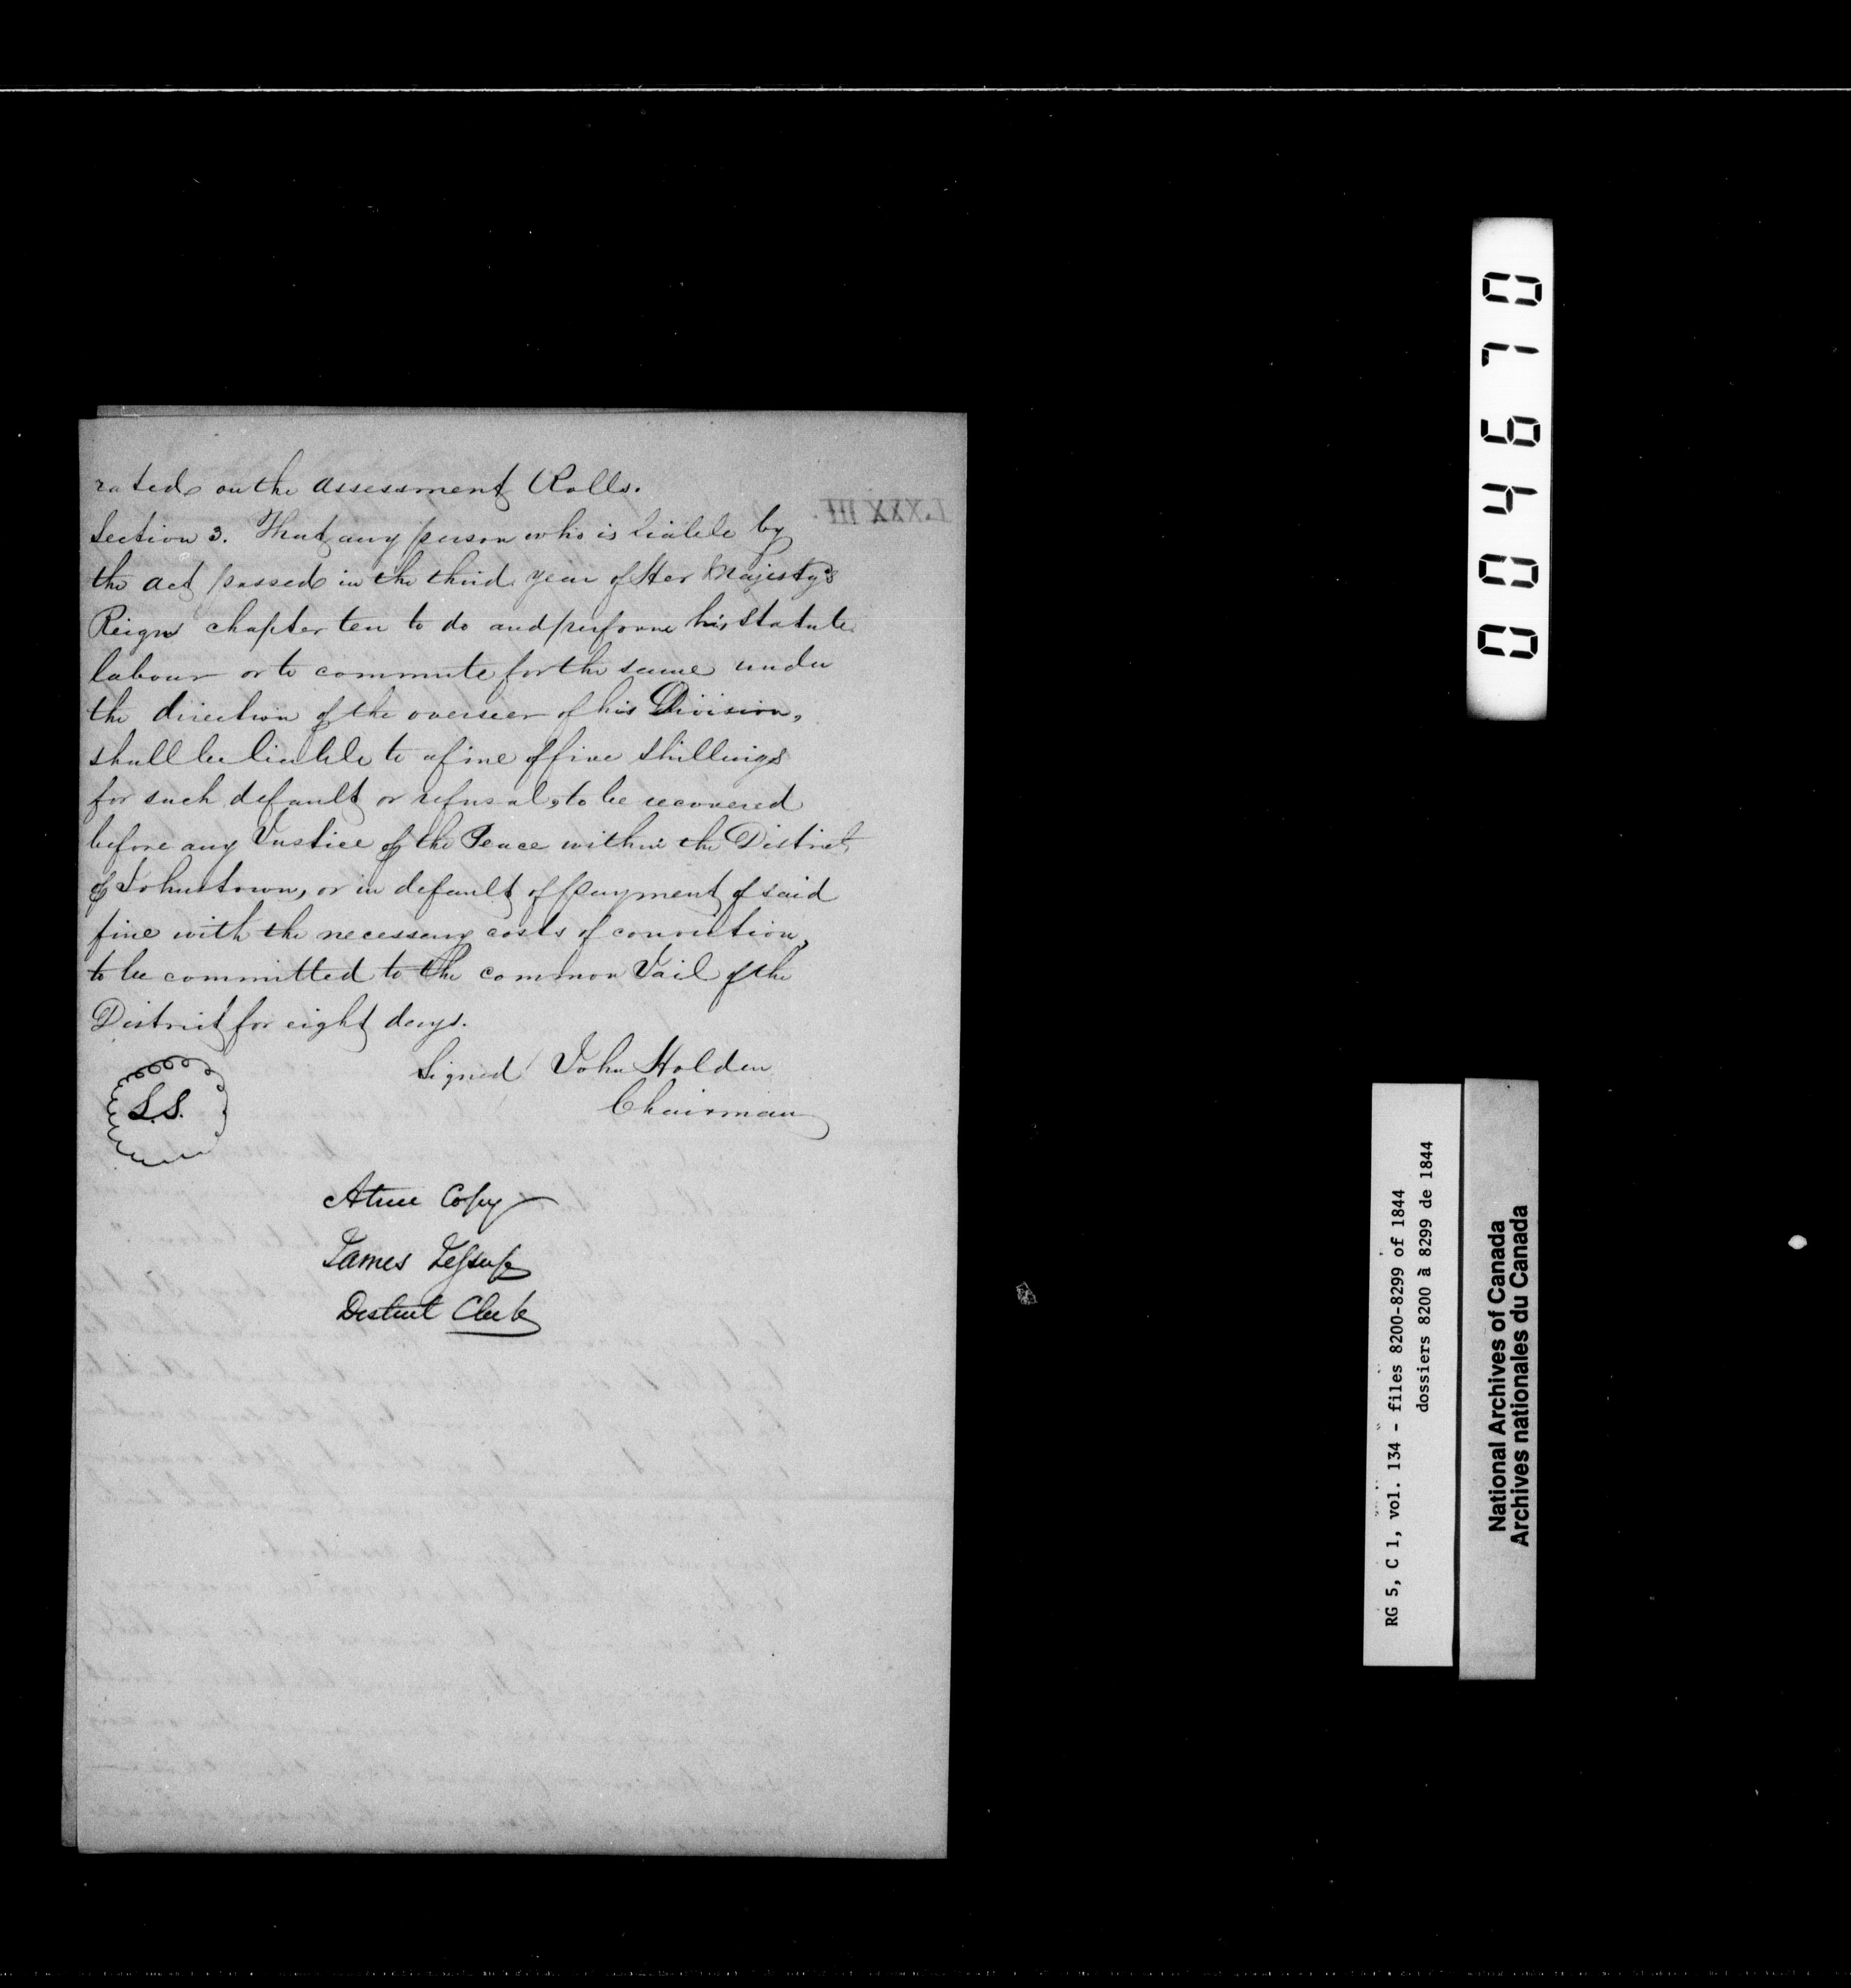 rated on the assessment Rolls.
Section 3. That any person who is liable by
the act passed in the third year of Her Majesty's
Reign chapter ten to do and perform his Statute
labour or to commute for the same under
the direction of the overseer of his Division,
shall be liable to a fine of five shillings
for such default or refusal, to be recovered
before any Justice of the Peace within the District
of Johnstown, or in default of payment of said
fine with the necessary costs of conviction,
to be committed to the common Jail of the
District for eight days.
Signed John Holden
Chairman
L.S.
A true Copy
James Jessup
District Clerk
LXXXIII.
004670
RG 5, C 1, vol. 134 - files 8200-8299 of 1844
dossiers 8200 à 8299 de 1844
National Archives of Canada
Archives nationales du Canada